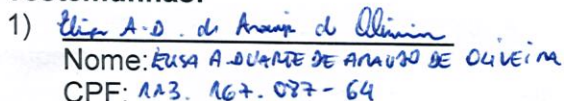 1) Elisa A.D. de Araujo de Oliveira
Nome: ELISA A. DUARTE DE ARAUJO DE OLIVEIRA
CPF: 113. 167. 087 - 64